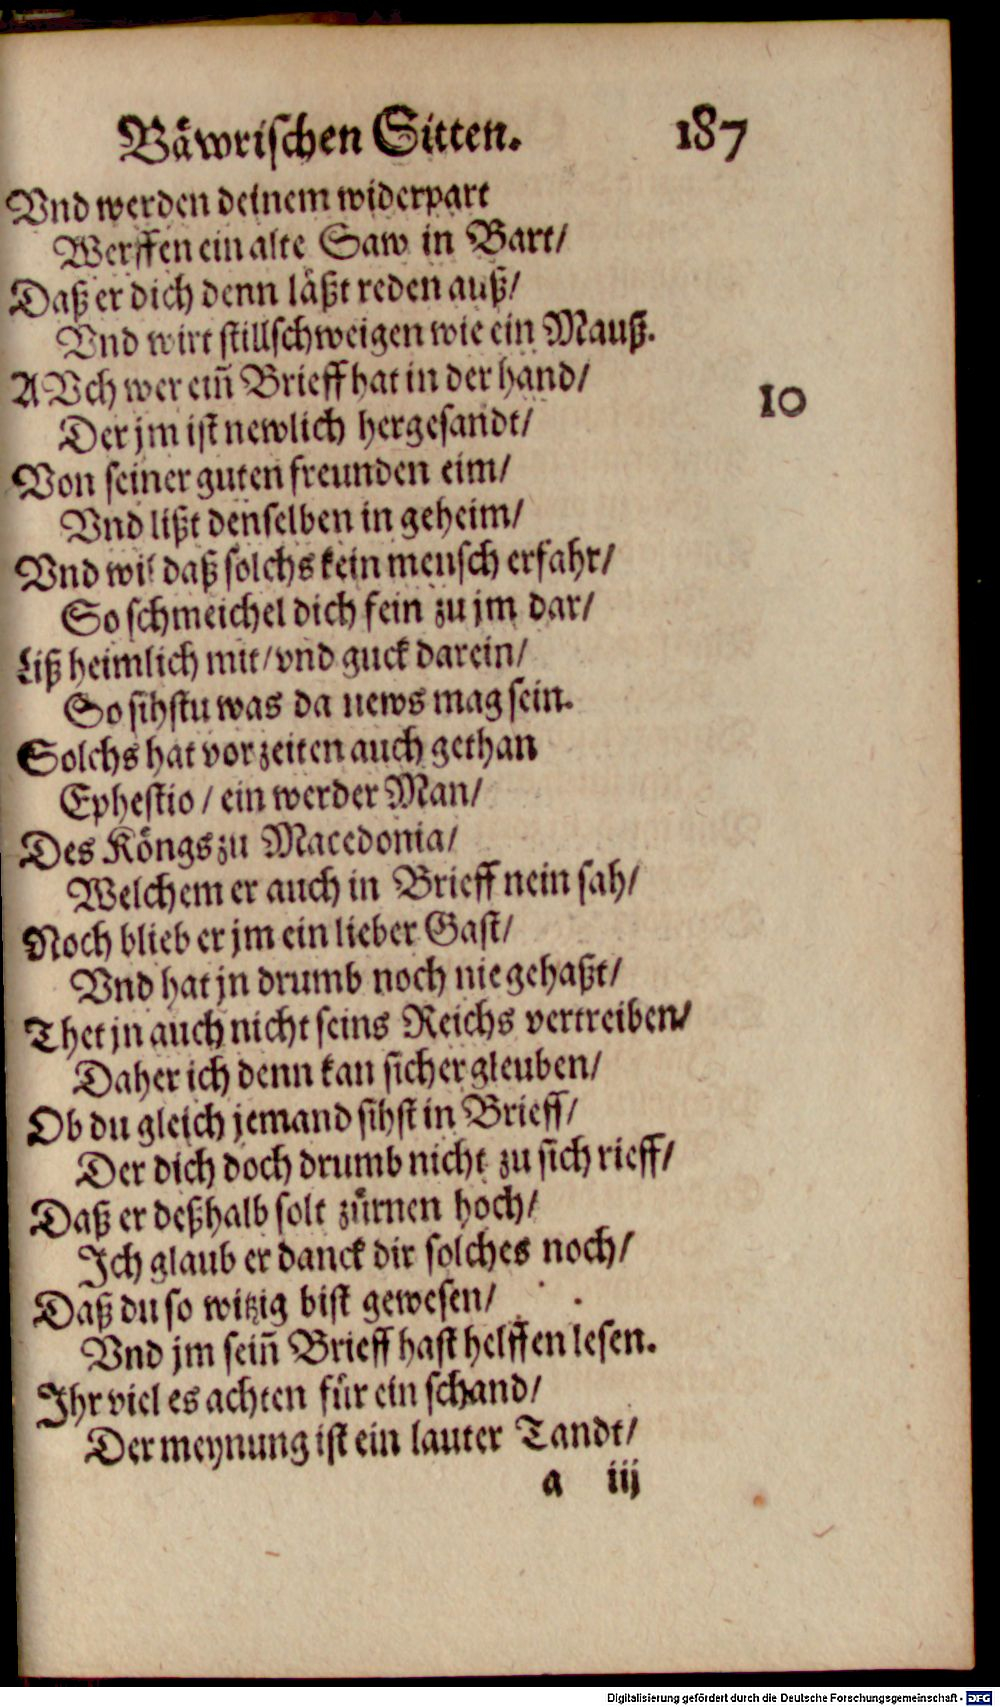 Bäwrischen Sitten. 187
Vnd werden deinem widerpart
Werffen ein alte Saw in Bart/
Daß er dich denn läßt reden auß/
Vnd wirt stillschweigen wie ein Mauß.
AVch wer ein̄ Brieff hat in der hand/ 10
Der jm ist newlich hergesandt/
Von seiner guten freunden eim/
Vnd lißt denselben in geheim/
Vnd wil daß solchs kein mensch erfahr/
So schmeichel dich fein zu jm dar/
Liß heimlich mit/ vnd guck darein/
So sihstu was da news mag sein.
Solchs hat vor zeiten auch gethan
Ephestio / ein werder Man/
Des Köngs zu Macedonia/
Welchem er auch in Brieff nein sah/
Noch blieb er jm ein lieber Gast/
Vnd hat jn drumb noch nie gehaßt/
Thet jn auch nicht seins Reichs vertreiben/
Daher ich denn kan sicher gleuben/
Ob du gleich jemand sihst in Brieff/
Der dich doch drumb nicht zu sich rieff/
Daß er deßhalb solt zürnen hoch/
Ich glaub er danck dir solches noch/
Daß du so witzig bist gewesen/
Vnd jm sein̄ Brieff hast helffen lesen.
Ihr viel es achten für ein schand/
Der meynung ist ein lauter Tandt/
a iij
Digitalisierung gefördert durch die Deutsche Forschungsgemeinschaft - DFG